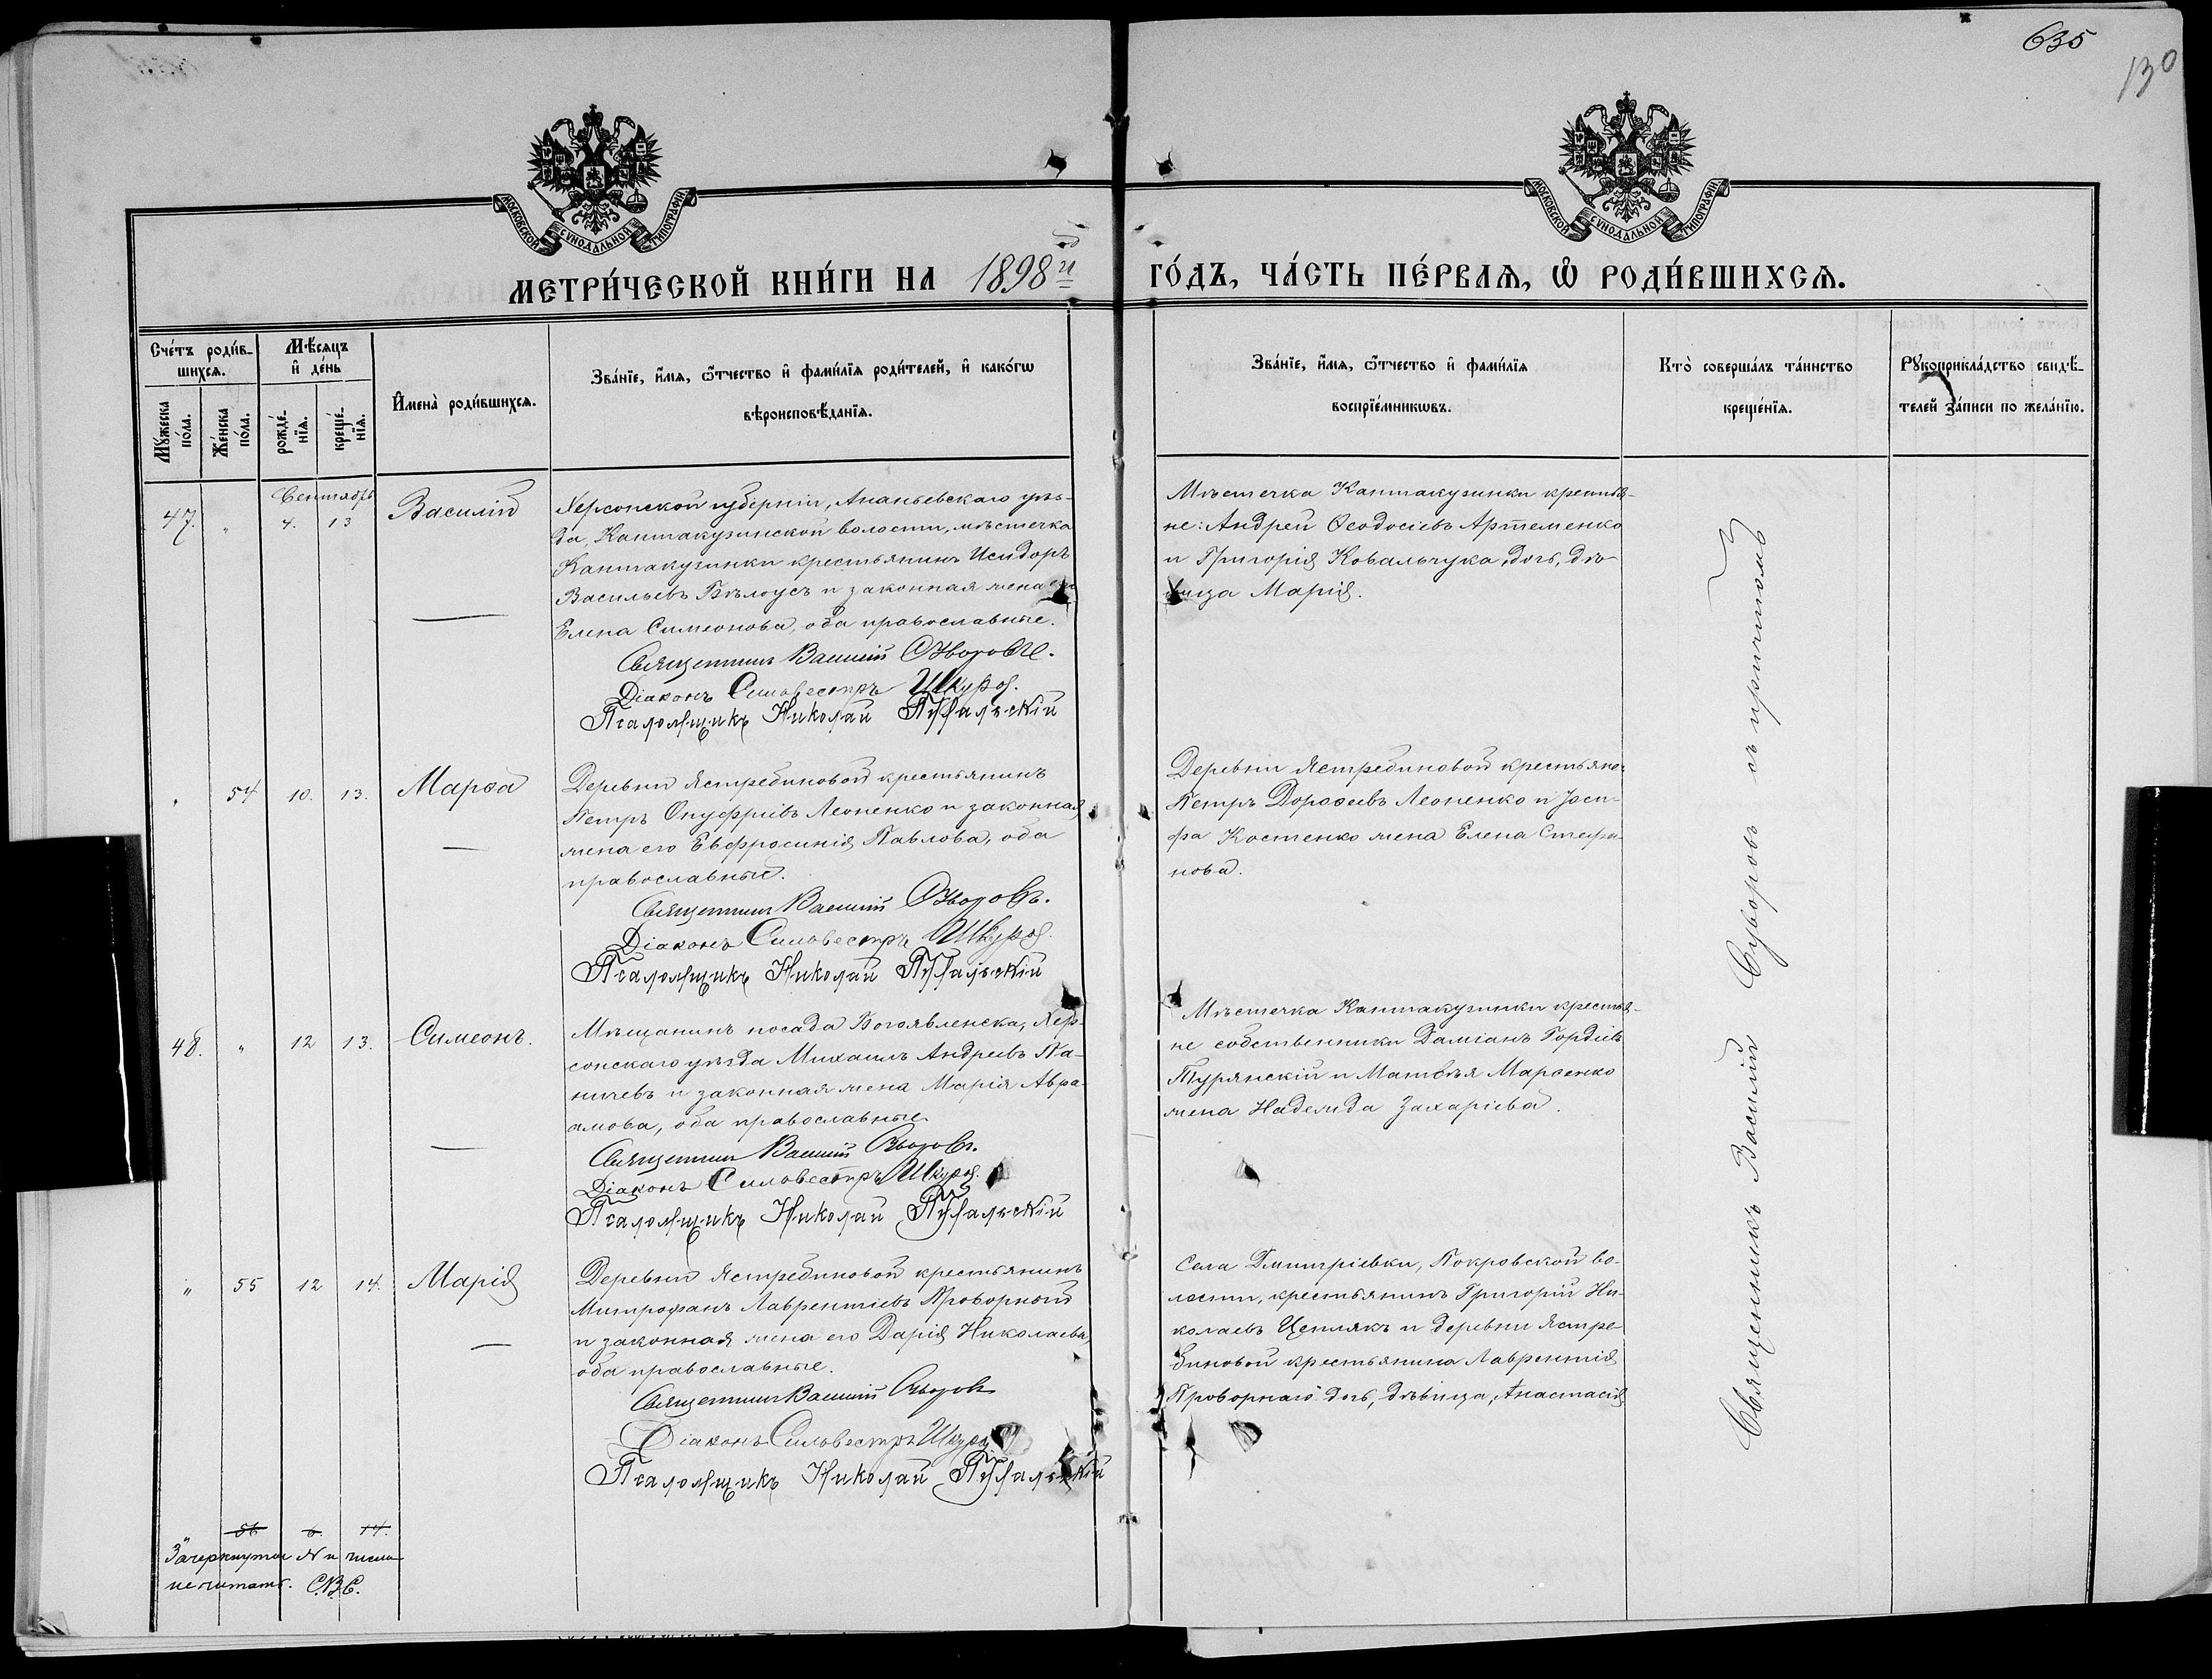 635
130
МОСКОВСКОЙ СѴНОДАЛЬНОЙ ТИПОГРАФІИ
МОСКОВСКОЙ СѴНОДАЛЬНОЙ ТИПОГРАФІИ
МЕТРИ́ЧЕСКОЙ КНИ́ГИ НА 1898й
ГО́ДЪ, ЧА́СТЬ ПЕ́РВАѦ, Ѽ РОДИ́ВШИХСѦ.
Сче́тъ роди́в-
шихсѧ.
Мꙋ́жеска по́ла.
Же́нска по́ла.
Мѣ́сѧцъ и҆ де́нь
рожде́-нїѧ.
креще́-нїѧ.
И҆мена̀ роди́вшихсѧ.
Зва́нїе, и҆́мѧ, ѻ҆́тчество и҆ фами́лїѧ роди́телей, и҆ како́гѡ
вѣроисповѣ́данїѧ.
Зва́нїе, и҆́мѧ, ѻ҆́тчество и҆ фами́лїѧ
воспрїе́мникѡвъ.
Кто̀ соверша́лъ та́инство
креще́нїѧ.
Рꙋкоприкла́дство свидѣ́-
телей за́писи по жела́нїю.
Сентябрь
47. " 4. 13 Василій
Херсонской губерніи, Ананьевскаго уѣз-
да, Кантакузинской волости, мѣстечка
Кантакузинки крестьянинъ Исидоръ
Васильевъ Бѣлоусъ и законная жена его
Елена Симеонова, оба православные.
Священникъ Василій Суворовъ.
Діаконъ Сильвестръ Шкура.
Псаломщикъ Николай
Мѣстечка Кантакузинки крестья-
не: Андрей Ѳеодосіевъ Артеменко
и Григорія Ковальчука, дочь, дѣ-
вица Марія.
" 54 10. 13. Марѳа
Деревни Ястребиновой крестьянинъ
Петръ Онуфріевъ Леоненко и законная
жена его Евфросинія Павлова, оба
православные.
Священникъ Василій Суворовъ.
Діаконъ Сильвестръ Шкура.
Псаломщикъ Николай
Деревни Ястребиновой крестьяне:
Петръ Дороѳеевъ Леоненко и Іоси-
фа Костенко жена Елена Стефа-
нова.
48. " 12 13. Симеонъ.
Мѣщанинъ посада Богоявленска, Хер-
сонскаго уѣзда Михаилъ Андреевъ Па-
ничевъ и законная жена Марія Авра-
амова, оба православные
Священникъ Василій Суворовъ.
Діаконъ Сильвестръ Шкура.
Псаломщикъ Николай
Мѣстечка Кантакузинки крестья-
не собственники Даміанъ Гордіевъ
Турянскій и Матѳея Марченко
жена Надежда Захаріева.
" 55 12 14. Марія
Деревни Ястребиновой крестьянинъ
Митрофанъ Лаврентіевъ Проворный
и законная жена его Дарія Николаева,
оба православные.
Священникъ Василій Суворовъ
Діаконъ Сильвестръ Шкура
Псаломщикъ Николай
Села Дмитріевки, Покровской во-
лости, крестьянинъ Григорій Ни-
колаевъ Цеплякъ и деревни Ястре-
биновой крестьянина Лаврентія
Проворнаго дочь, дѣвица, Анастасія
Священникъ Василій Суворовъ съ причтомъ
" 56 6. 14.
Зачеркнутые № и числа
не читать. С.В.С.